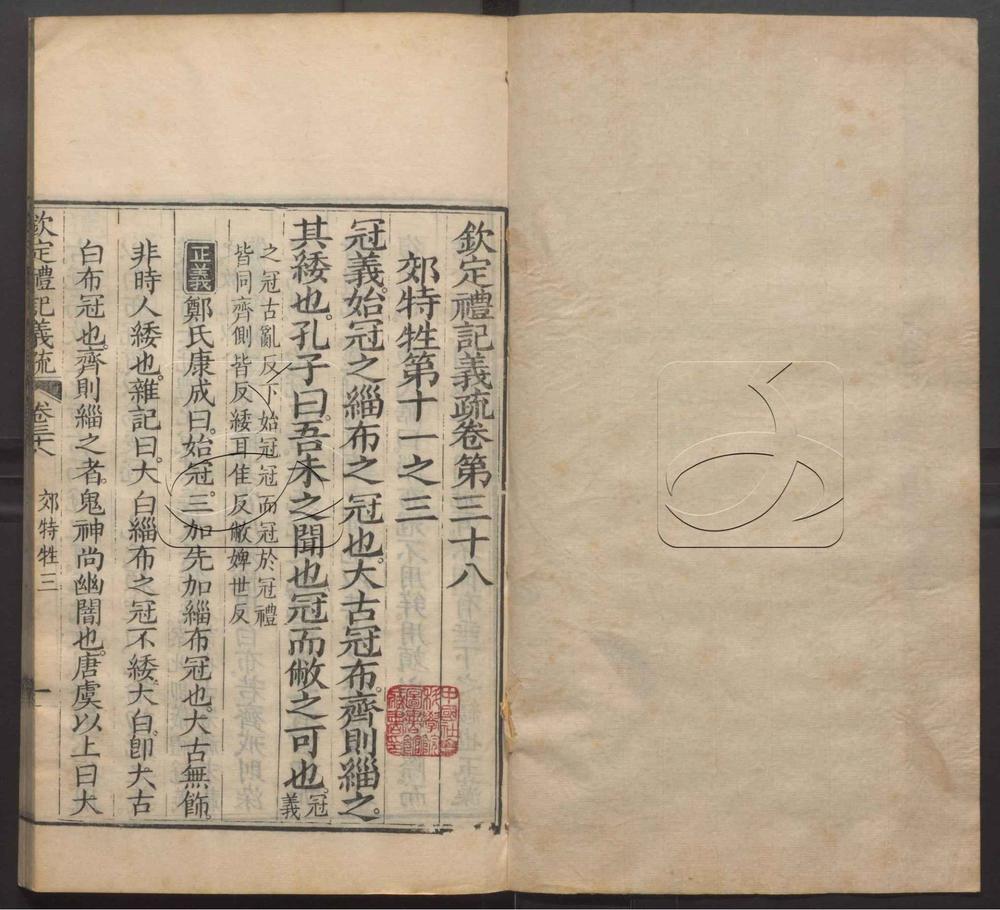 欽定禮記義疏卷第三十八
郊特牲第十一之三
冠義始冠之緇布之冠也大古冠布齊則緇之
其緌也孔子曰吾未之聞也冠而敝之可也冠義
之冠古亂反下始冠冠而冠於冠禮
皆同齊側皆反緌耳隹反敝婢世反
正義 鄭氏康成曰始冠三加先加緇布冠也大古無飾
非時人緌也雜記曰大白緇布之冠不緌大白卽大古
白布冠也齊則緇之者鬼神尚幽闇也唐虞以上曰大
欽定禮記義疏 卷三十八 郊特牲三 一